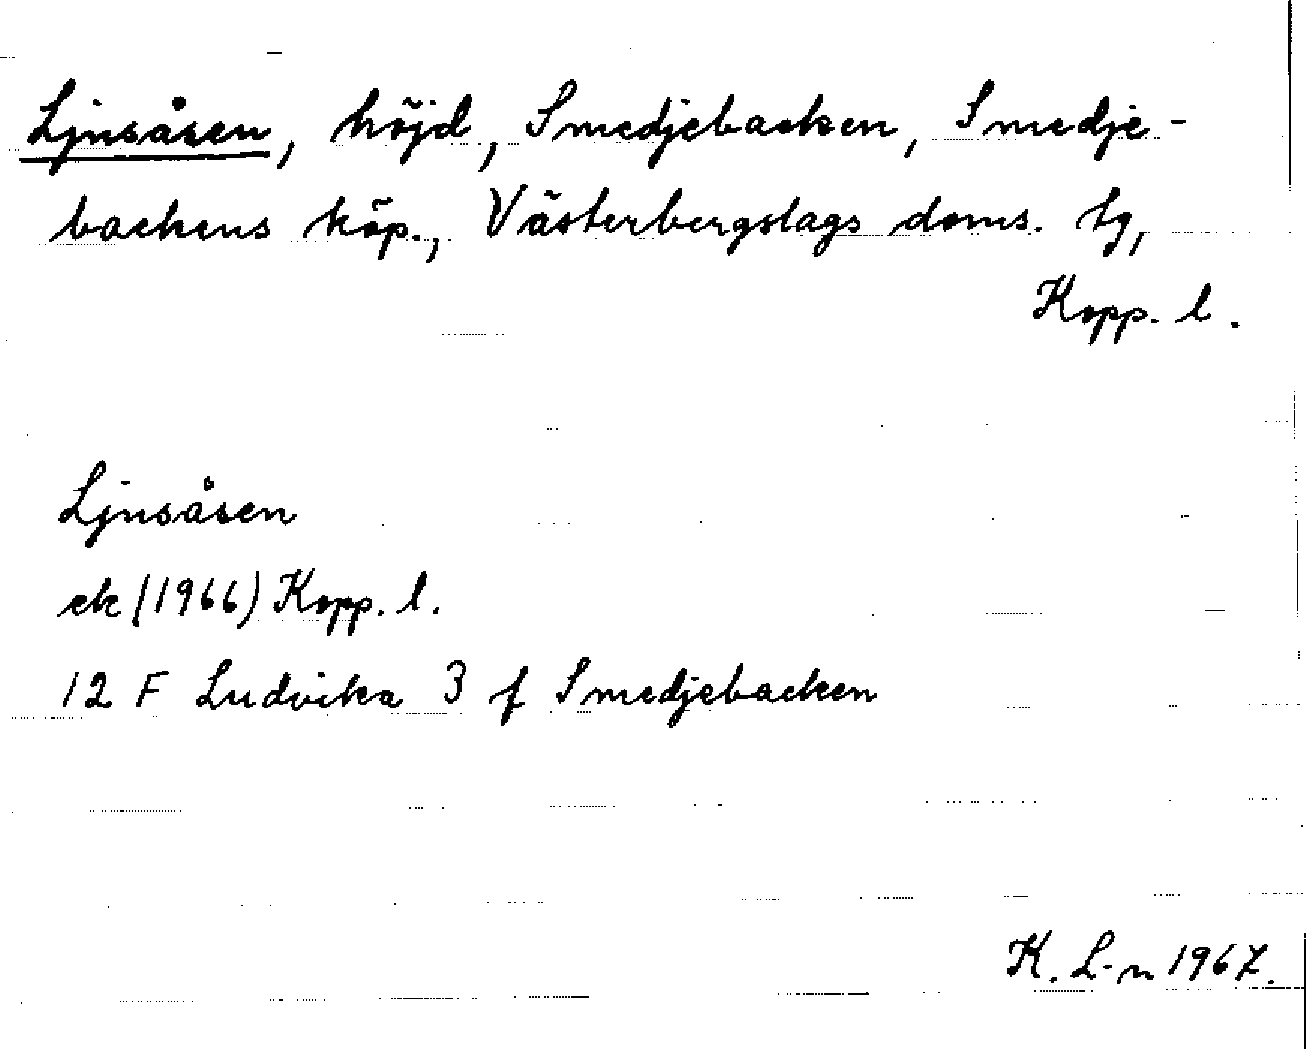 Ljusåsen, höjd, Smedjebacken, Smedje-
backens köp., Västerbergslags doms. tg,
Kopp. l.
Ljusåsen
ek (1966) Kopp. l.
12 F Ludvika 3 f Smedjebacken
K. L-n 1967.